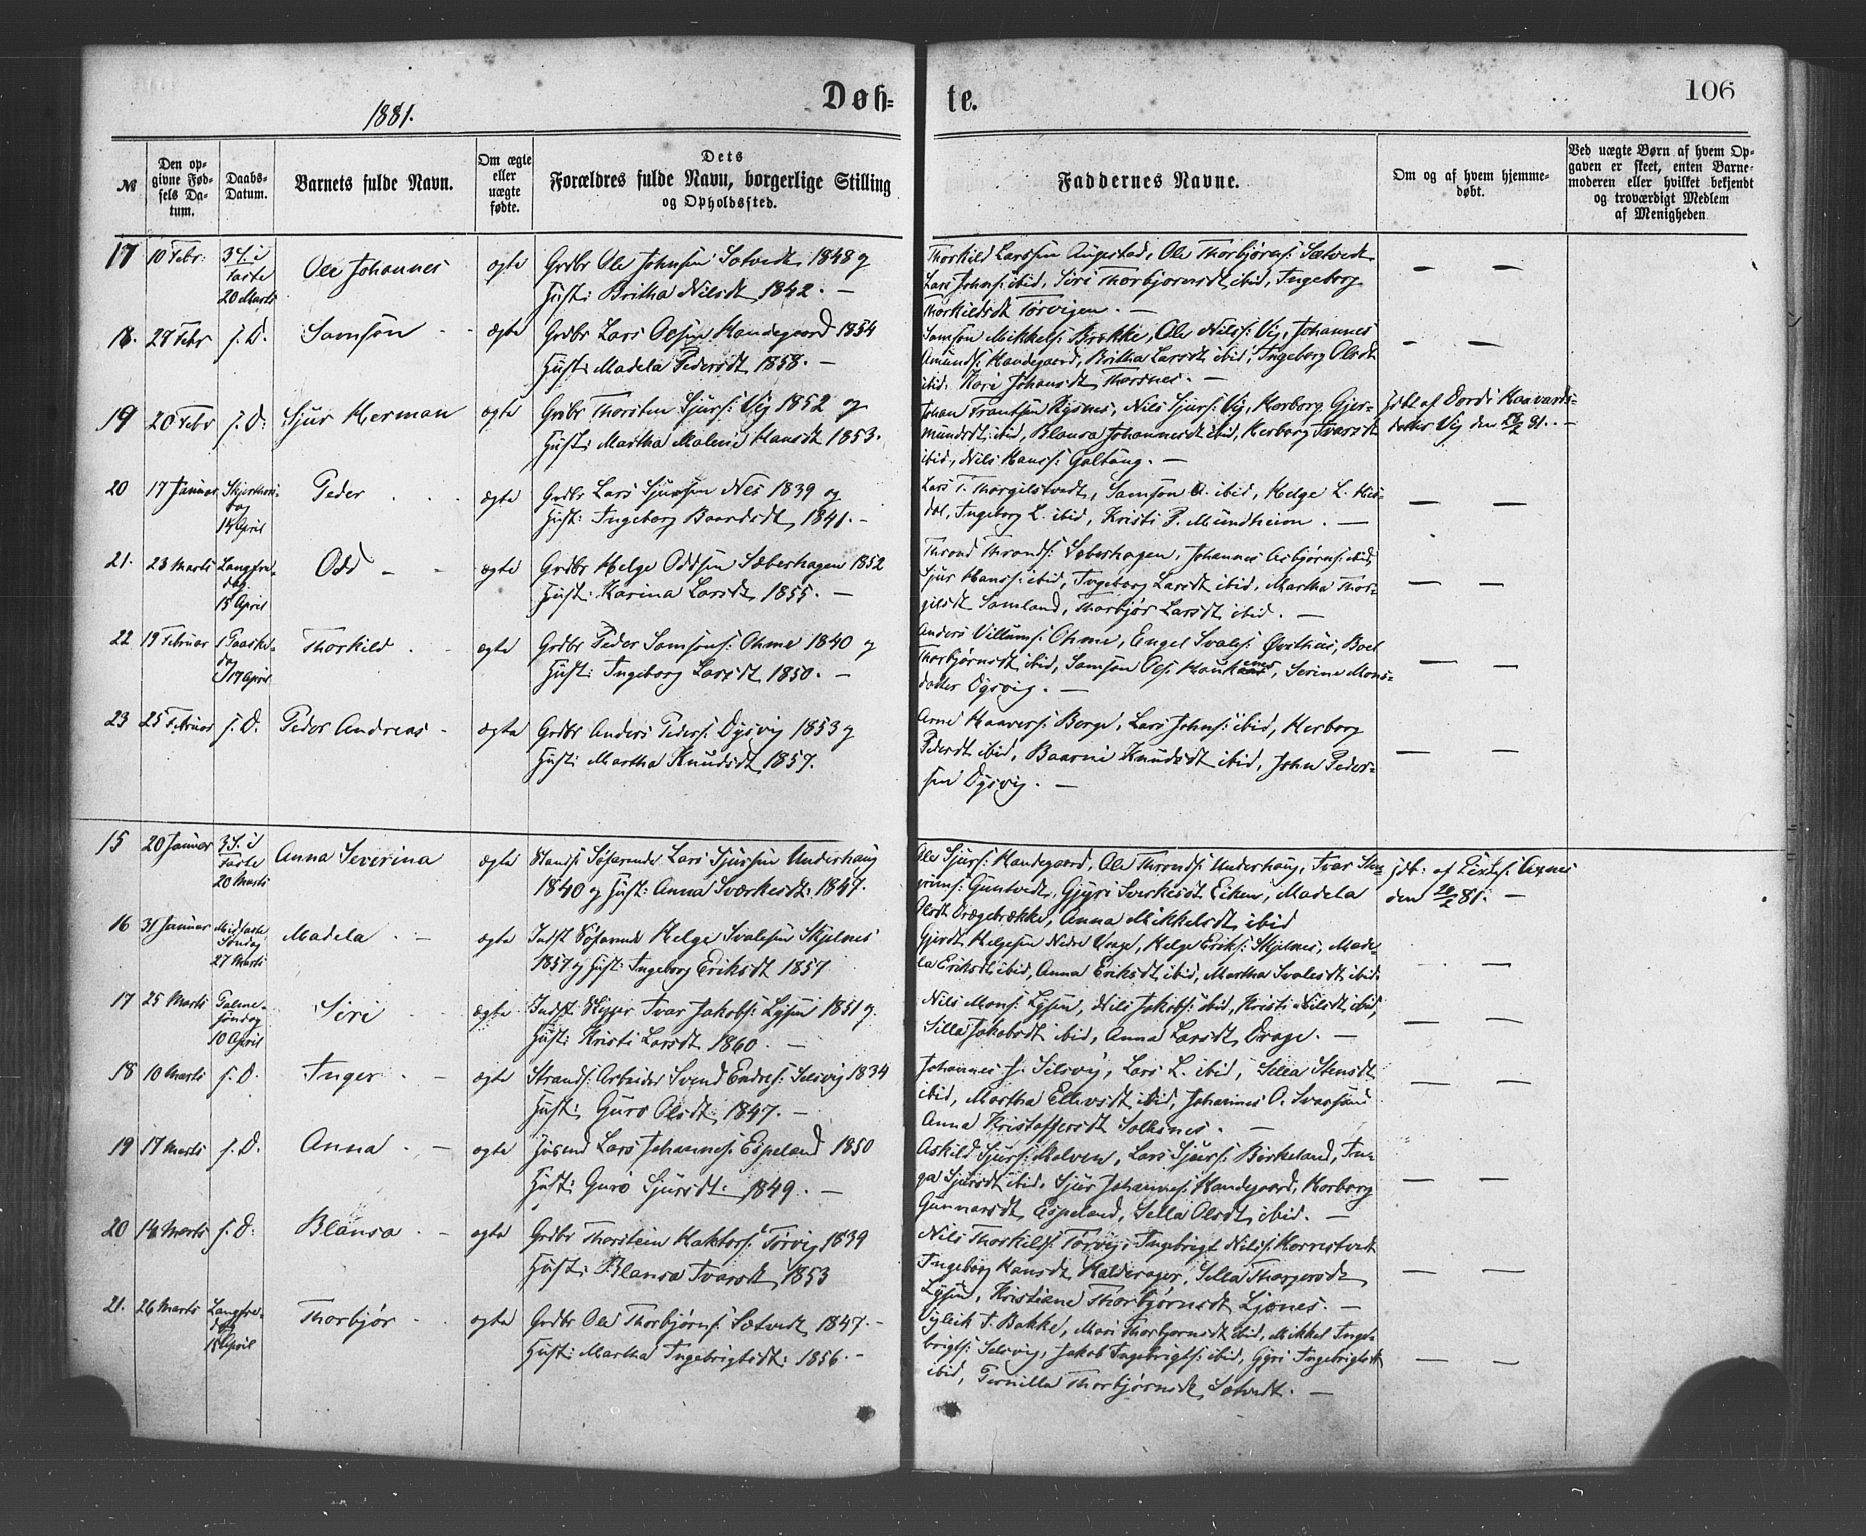 1881.
Døb-
te.
106
№
Den op-
givne Fød-
sels Da-
tum.
Daabs-
Datum.
Barnets fulde Navn.
Om ægte
eller
uægte
fødte.
Dets
Forældres fulde Navn, borgerlige Stilling
og Opholdssted.
Faddernes Navne.
Om og af hvem hjemme-
døbt.
Ved uægte Børn af hvem Op-
gaven er skeet, enten Barne-
moderen eller hvilket bekjendt
og troværdigt Medlem
af Menigheden
17 10 Febr: 3 S. i Faste 20 Marts Ole Johannes ægte Grdbr Ole Johnsen Sætvedt 1848 og
Hust: Britha Nilsdt 1842. —
Thorkild Larssen Augestad, Ole Thorbjørns: Sætvedt
Lars Johns: ibid, Siri Thorbjørnsdt ibid, Ingeborg
Thorkildsdt Tørvigen. — — —
18. 27 Febr s. D. Samson ægte Grdbr Lars Olsen Handegaard 1854
Hust: Madela Pedersdt 1858. —
Samson Mikkels: Brække, Ole Nils: Vig, Johannes
Amunds: Handegaard, Britha Larsdt ibid, Ingeborg Olsdt
ibid, Kari Johansdt Thorsnes. — — —
19 20 Febr s. D: Sjur Herman ægte Grdbr Thorsten Sjurs: Vig 1852 og
Hust: Martha Malene Hansdt 1853.
Johan Frantsen Rysnes, Nils Sjurs: Vig, Herborg Gjer-
mundsdt ibid, Blansa Johannesdt ibid, Herborg Ivarsdt
ibid, Nils Hans: Galtung. —
hdbt af Dordi Haavards-
datter Vig den 81. —
20 17 Januar Skjærthors-
dag
14 April Peder ægte Grdbr Lars Sjursen Nes 1839 og
Hust: Ingeborg Baardsdt 1841. —
Lars T. Thorgilstvedt, Samson ibid, Helge L.
Ingeborg L. ibid, Kristi P. Mundheim. — — —
21. 23 Marts Langfre-
dag.
15 April Odd ægte Grdbr Helge Oddsen Sæbershagen 1852
Hust: Karina Larsdt 1855. —
Thrond Thronds: Sæbershagen, Johannes Asbjørns: ibid,
Sjur Hans: ibid, Ingeborg Larsdt ibid, Martha Thor-
gilsdt Samland, Thorbjør Larsdt ibid. — — —
22 19 Februar 1 Paaske-
dag
17 April Thorkild ægte Grdbr Peder Samsons: Ohme 1840 og
Hust: Ingeborg Larsdt 1850. —
Anders Villums: Ohme, Engel Svales: Øvsthus, Boel
Thorbjørnsdt ibid, Samson Ols: Serine Mons-
datter Dysvig. — — —
23 25 Februar s. D. Peder Andreas ægte Grdbr Anders Peders: Dysvig 1853 og
Hust: Martha Knudsdt 1857.
Arne Haavers: Berge, Lars Johns: ibid, Herborg
Pedersdt ibid, Baarni Knudsdt ibid, John Peder-
sen Dysvig. — — —
15 20 Januar 3 S. i
Faste
20 Marts Anna Severina ægte Søfarende Lars Sjursen Underhaug
1840 og Hust: Anna Sværkesdt: 1847.
Ole Sjurs: Handegaard, Ole Thronds: Underhaug, Ivar Sten-
grims: Guntvedt, Gjyri Sverkesdt Eiken, Madela
Olsdt Drægebrække, Anna Mikkelsdt ibid
hdb: af
den 81. —
16 31 Januar Midfaste
Søndag
27 Marts Madela ægte Indst Søfarende Helge Svalesen Skjelnes
1857 og Hust: Ingeborg Eriksdt 1857
Gjerdt Helgesen Nedre Helge Eriks: Skjelnes, Made-
la Eriksdt ibid, Anna Eriksdt ibid, Martha Svalesdt ibid. — —
17 25 Marts Palme-
søndag
10 April Siri ægte Indst: Skipper Ivar Jakobs: Lysen 1851 og
Hust: Kristi Larsdt 1860. —
Nils Mons: Lysen, Nils Jakobs: ibid, Kristi Nilsdt ibid,
Silla Jakobsdt ibid, Anna Larsdt Drage. — — —
18 10 Marts s. D. Inger ægte Strands: Arbeider Svend Endres: Selsvig 1834
Hust: Guro Olsdt: 1847. —
Johannes J. Selsvig, Lars L. ibid, Sella Stensdt
ibid, Martha Ellevsdt ibid, Johannes O.
Anna Kristoffersdt Solesnes. — — —
19 17 Marts s. D. Anna ægte Husmd Lars Johannes: Espeland 1850
Hust: Guro Sjursdt: 1849. —
Askild Sjurs: Malven, Lars Sjurs: Birkeland, In-
ga Sjursdt ibid, Sjur Johannes: Handegaard, Herborg
Gunnarsdt Espeland, Sella Olsdt ibid. — — —
20 14 Marts s. D: Blansa ægte Grdbr Thorstein Haktors: Tørvig 1839
Hust: Blansa Ivarsdt 1853
Nils Thorkilds: Tørvig, Ingebrigt Nils:
Ingeborg Hansdt Halderager, Sella Thorgersdt
Lysen, Kristiane Thorbjørnsdt Ljønes. — — —
21. 26 Marts Langfre-
dag
15 April Thorbjør ægte Grdbr Ole Thorbjørns: Sætvedt 1847. —
Hust: Martha Ingebrigtsdt: 1856. —
Vigleik T. Bakke, Mari Thorbjørnsdt ibid, Mikkel Inge-
brigts: Selsvig, Jakob Ingebrigts: ibid, Gyri Ingebrigtsdt
ibid, Pernilla Thorbjørnsdt Sætvedt. — — —